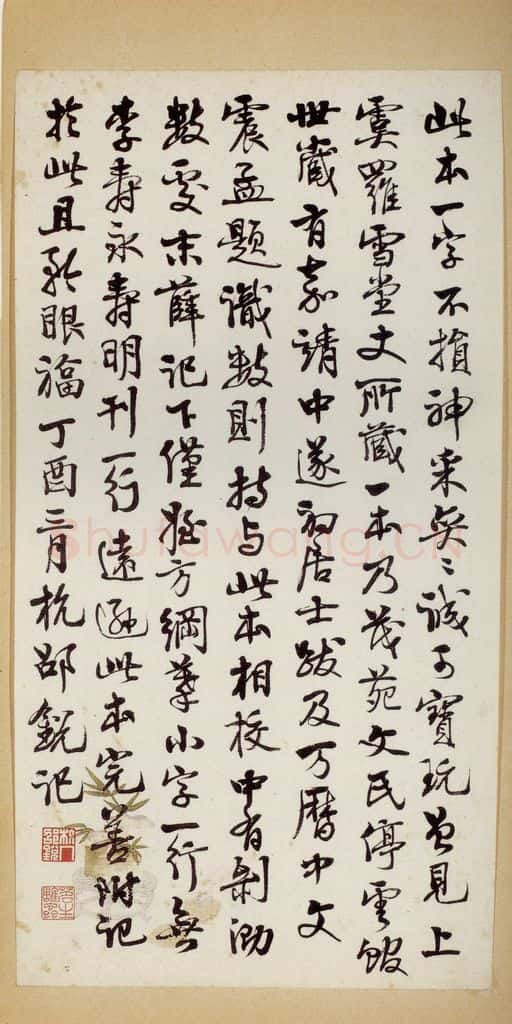 此本一字不損神采奕〻誠可寶玩曾見上
虞羅雪堂丈所藏一本乃茂苑文氏停雲館
世藏有嘉靖中遂初居士跋及万曆中文
震孟題識數則持与此本相校中有剝泐
數處末薛記下僅存方綱摹小字一行無
李壽永壽明刊一行遠遜此本完善附記
於此且矜眼福丁酉二月杭邵銳記
Shufawang.CN